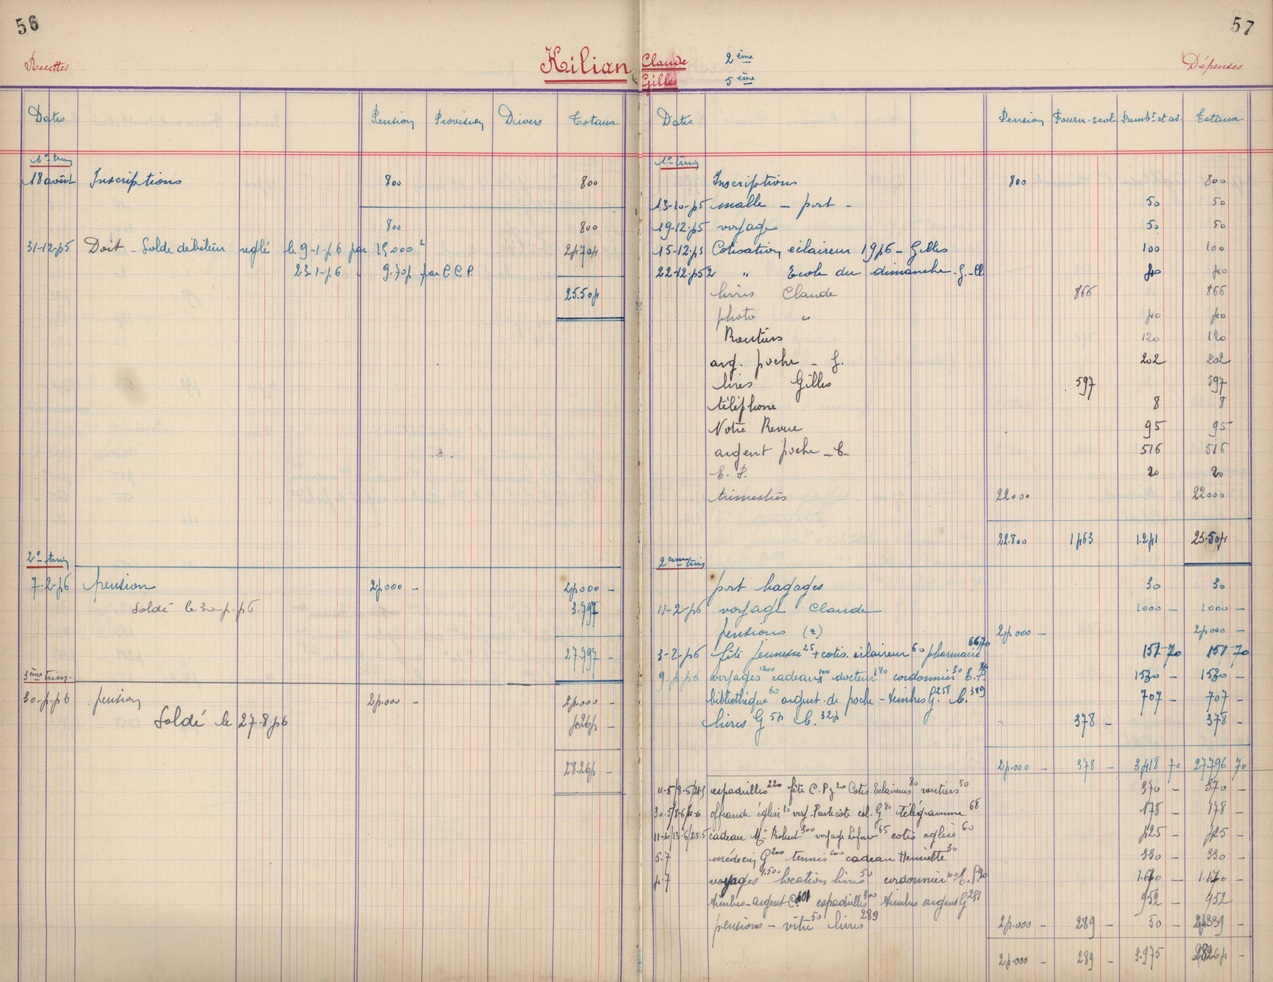 56
57
Recettes
Kilian
Claude 2ème
Gilles 5ème
Dépenses
Dates Pension Provision Divers Totaux
1er trim
18 août Inscriptions 800 800
800 800
31-12-45 Doit - Solde débiteur réglé le 9-1-46 par 15.000 24704
23-1-46 9.704 par C.C.P.
25.504
2e trim
7-2-46 pension 24000 - 24000 -
Soldé le 30-4-46 3.797
27797 -
3ème trim.
30-4-46 pension 24.000 - 24000 -
Soldé le 27-8-46 4264 -
28.264 -
Dates Pension Fourn. scol Totaux
1er trim
Inscriptions 800 800
13-10-45 malle - port - 50 50
19-12-45 voyage 50 50
15-12-45 Cotisation éclaireur 1946 - Gilles 100 100
22-12-45 " Ecole du dimanche - G.-Cl. 40 40
livres Claude 866 866
photo " 40 40
Routiers 120 120
arg. poche - G. 202 202
livres Gilles 597 597
téléphone 8 8
Notre Revue 95 95
argent poche - C. 516 516
E. P. 20 20
trimestres 22000 22000
22.800 1463 1.241 25.504
2ème trim
port bagages 30 30
11-2-46 voyage Claude 1000 - 1000 -
pensions (2) 24.000 - 24000 -
3-2-46 fête jeunesse 25 + cotis. éclaireur 60 pharmacie 66 70 151 70 151 70
9-4-46 voyages cadeaux 100 docteur cordonnier E.P. 1530 - 1530 -
bibliothèque 60 argent de poche - timbres G. 258 C. 389 707 - 707 -
livres G 54 C. 324 378 - 378 -
24.000 - 378 - 3418 70 27796 70
espadrilles 220 fête C.P. 20 Cotis. Eclaireurs 80 routiers 50 370 - 370 -
offrande église voy. Pentecôte G télégramme 68 178 - 178 -
cadeau Robert 300 voyage 65 cotis église 60 425 - 425 -
5-7 médecin G 200 tennis 100 cadeau Henriette 30 330 - 330 -
4-7 voyages location livres 50 cordonnier E.P. 1.670 - 1.670 -
timbres-argent C. espadrilles 300 timbres argent G 251 952 - 952
pensions - vitre 50 livres 289 24.000 - 289 - 50 - 24339 -
24.000 - 289 - 3.975 28264 -